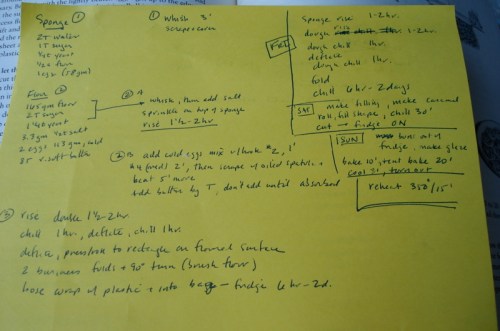 Sponge ①
2T water
1T sugar
1/4t yeast
1/2c flour
1 egg (58gm)
① whisk 3'
scrape + cover
Flour ②
165 gm flour
2T sugar
1 1/4t yeast
3.7gm 1/2t salt
2 eggs 113gm, cold
8T v. soft butter
② A
whisk, then add salt
sprinkle on top of sponge
rise 1 1/2 - 2 hr
② B add cold eggs mix w/ hook #2, 1'
#4 2', then scrape w/ oiled spatula +
beat 5' more
add butter by T, don't add until absorbed
FRI
Sponge rise 1-2 hr.
dough rise 1-2 hr.
dough chill 1 hr.
deflate
dough chill 1 hr.
fold
chill 6 hr - 2 days
SAT make filling, make caramel
roll, fill shape, chill 30'
cut → fridge ON
SUN buns out of
fridge, make glaze
bake 10', tent bake 20'
cool 5', turn out
reheat 350°/15'
③ rise double 1 1/2 - 2 hr.
chill 1 hr, deflate, chill 1 hr.
deflate, press/roll to rectangle on floured surface
2 business folds + 90° turn (brush flour)
loose wrap w/ plastic + into bag - fridge 6 hr - 2d.